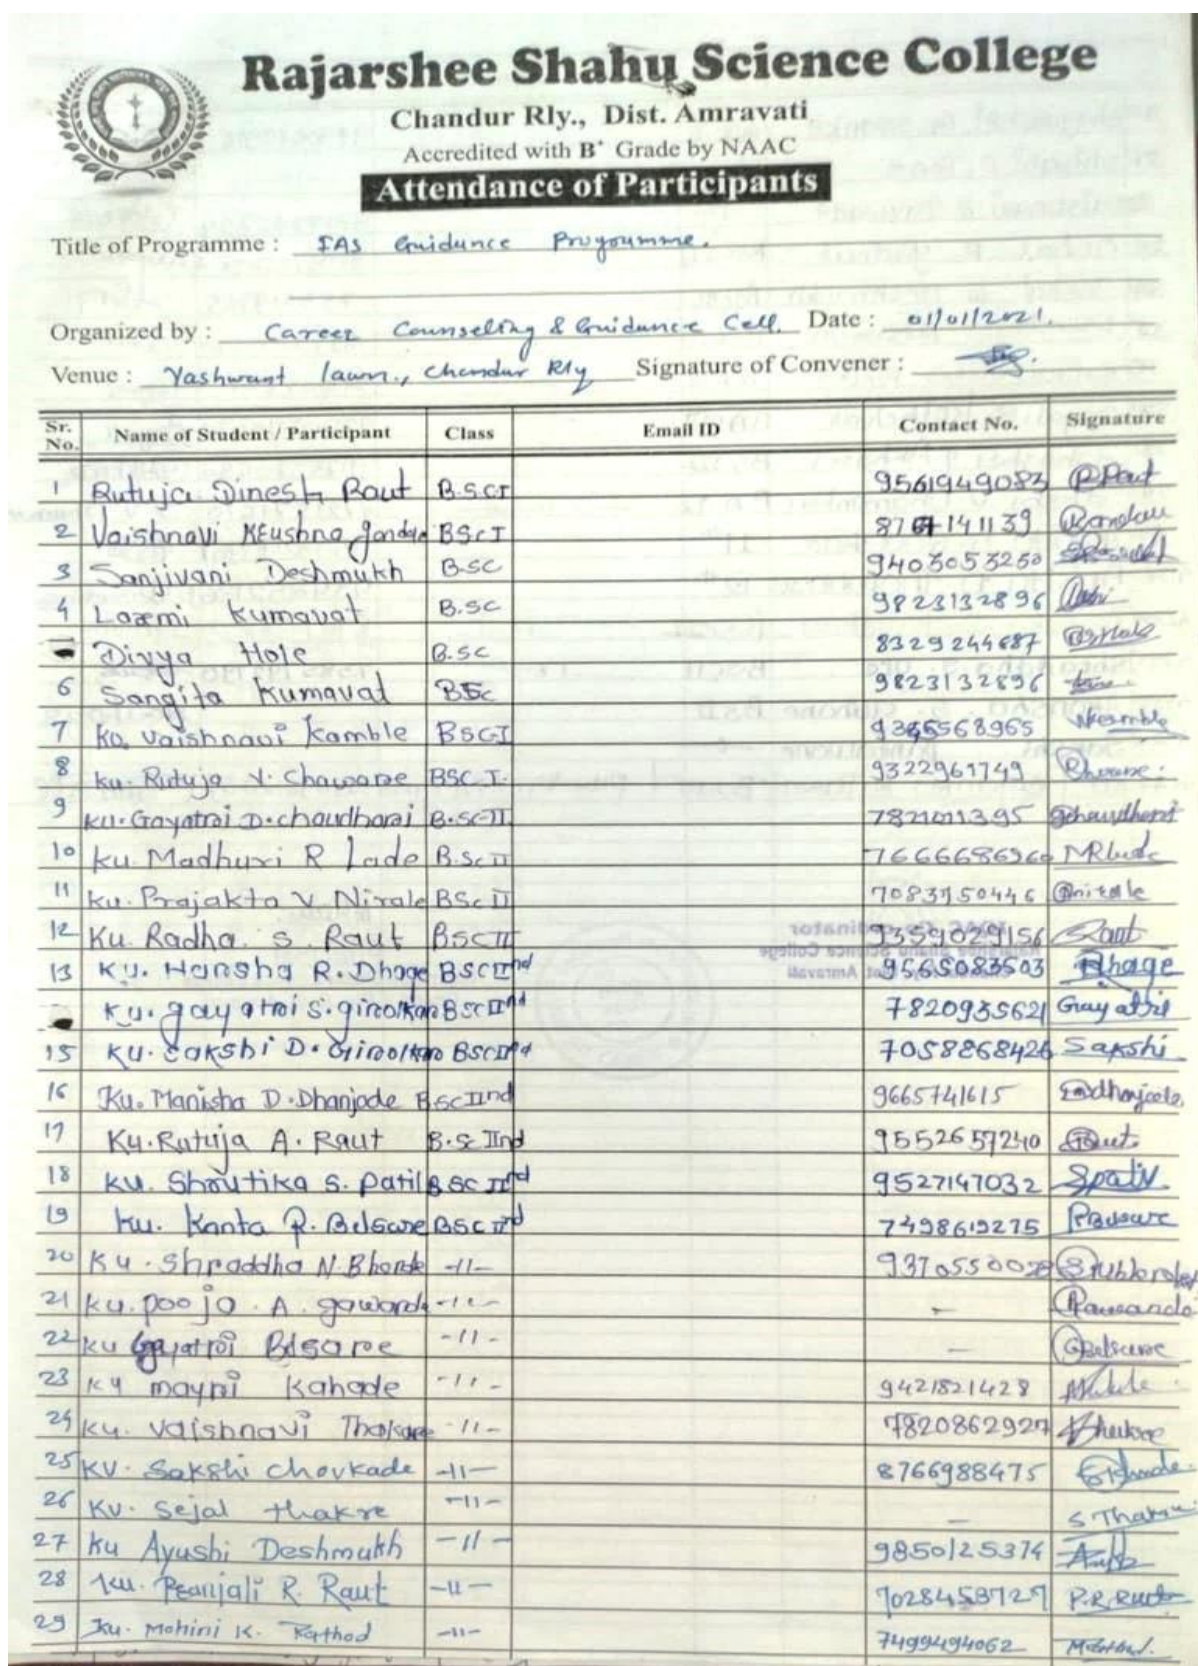 Rajarshee Shahu Science College
Chandur Rly., Dist. Amravati
Accredited with B+ Grade by NAAC
Attendance of Participants
Title of Programme : IAS Guidance Programme.
Organized by : Career Counseling & Guidance Cell. Date : 01/01/2021.
Venue : Yashwant lawn., Chandur Rly Signature of Convener :
Sr. No. Name of Student / Participant Class Email ID Contact No. Signature
1 Rutuja Dinesh Raut B.SCI 9561949083 RRaut
2 Vaishnavi Krushna BScI
3 Sanjivani Deshmukh B.SC 9403053250
4 Laxmi Kumavat B.SC 9823132896
Divya Hole B.SC 8329244687
6 Sangita Kumavat BSc 9823132896
7 Ku. Vaishnavi Kamble BSC-I Vkamble
8 Ku. Rutuja V. Chavare BSC-I. 9322961749
9 Ku. Gayatri D. choudhari B.SC-II Gchaudhari
10 Ku. Madhuri R Lade B.Sc II MRLade
11 Ku. Prajakta V. Nirale BSc II Pnirale
12 Ku. Radha. S. Raut BSC II 9359029156 Raut
13 Ku. Hansha R. Dhage BSC IInd 9565083503 Rhage
Ku. gayatri S. BSc IInd 7820935621 Gayatri
15 Ku. Sakshi D. BSC IInd 7058868426 Sakshi
16 Ku. Manisha D. Dhanjode B.SC IInd 9665741615
17 Ku. Rutuja A. Raut B.Sc IInd 9552657240 Raut
18 Ku. Shrutika S. Patil B SC IInd 9527147032 Spatil
19 Ku. Kanta P. Belsare BSC IInd 7498619275 PBelsare
20 Ku. Shraddha N. Bhonde -11-
21 Ku. pooja. A. gawande -11- -
22 Ku Gayatri Belsare -11- - GBelsare
23 Ku mayri Kahade -11- 9421821428
24 Ku. Vaishnavi Thakare -11- 7820862927
25 KU. Sakshi Choukade -11- 8766988475
26 KU. Sejal thakre -11- - S Thakre
27 Ku Ayushi Deshmukh -11- 9850125374
28 Ku. Pranjali R. Raut -11- 7028458727 P.R. Raut
29 Ku. Mohini K. Rathod -11- 7499494062